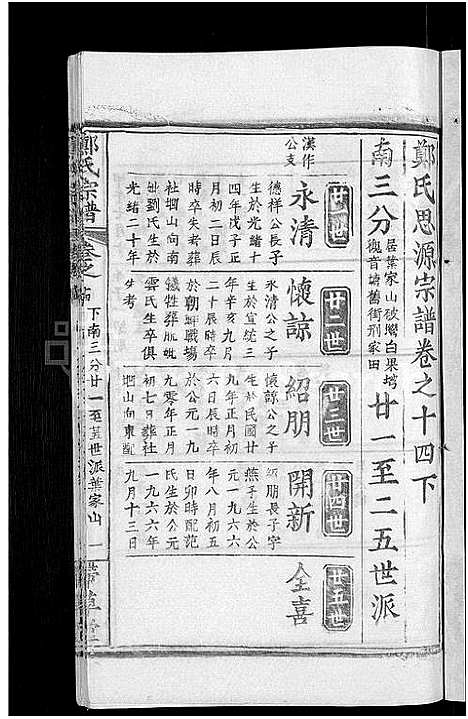 鄭氏思源宗譜卷之十四下
南三分
居葉家山破嘴白果塆
觀音塘舊街刑家田
廿一至二五世派
廿一世
漢作
公支
永清
德祥公長子
生於光緒十
四年戊子正
月初二日辰
時卒失考葬
社塆山向南
妣劉氏生於
光緒二十年
廿二世
懷諒
永清公之子
生於宣統三
年辛亥九月
二十辰時卒
於朝鮮戰場
犧牲葬
雲氏生卒俱
失考
廿三世
紹朋
懷諒公之子
生於民國廿
九年正月初
六日辰時卒
於公元一九
九零年正月
初七日葬社
塆山向東配
廿四世
開新
紹朋長子字
燕子生於公
元一九六六
年八月初五
日卯時配范
氏生於公元
一九六六年
九月十三日
廿五世
全喜
鄭氏宗譜
卷之
下南三分廿一至五世派葉家山
一